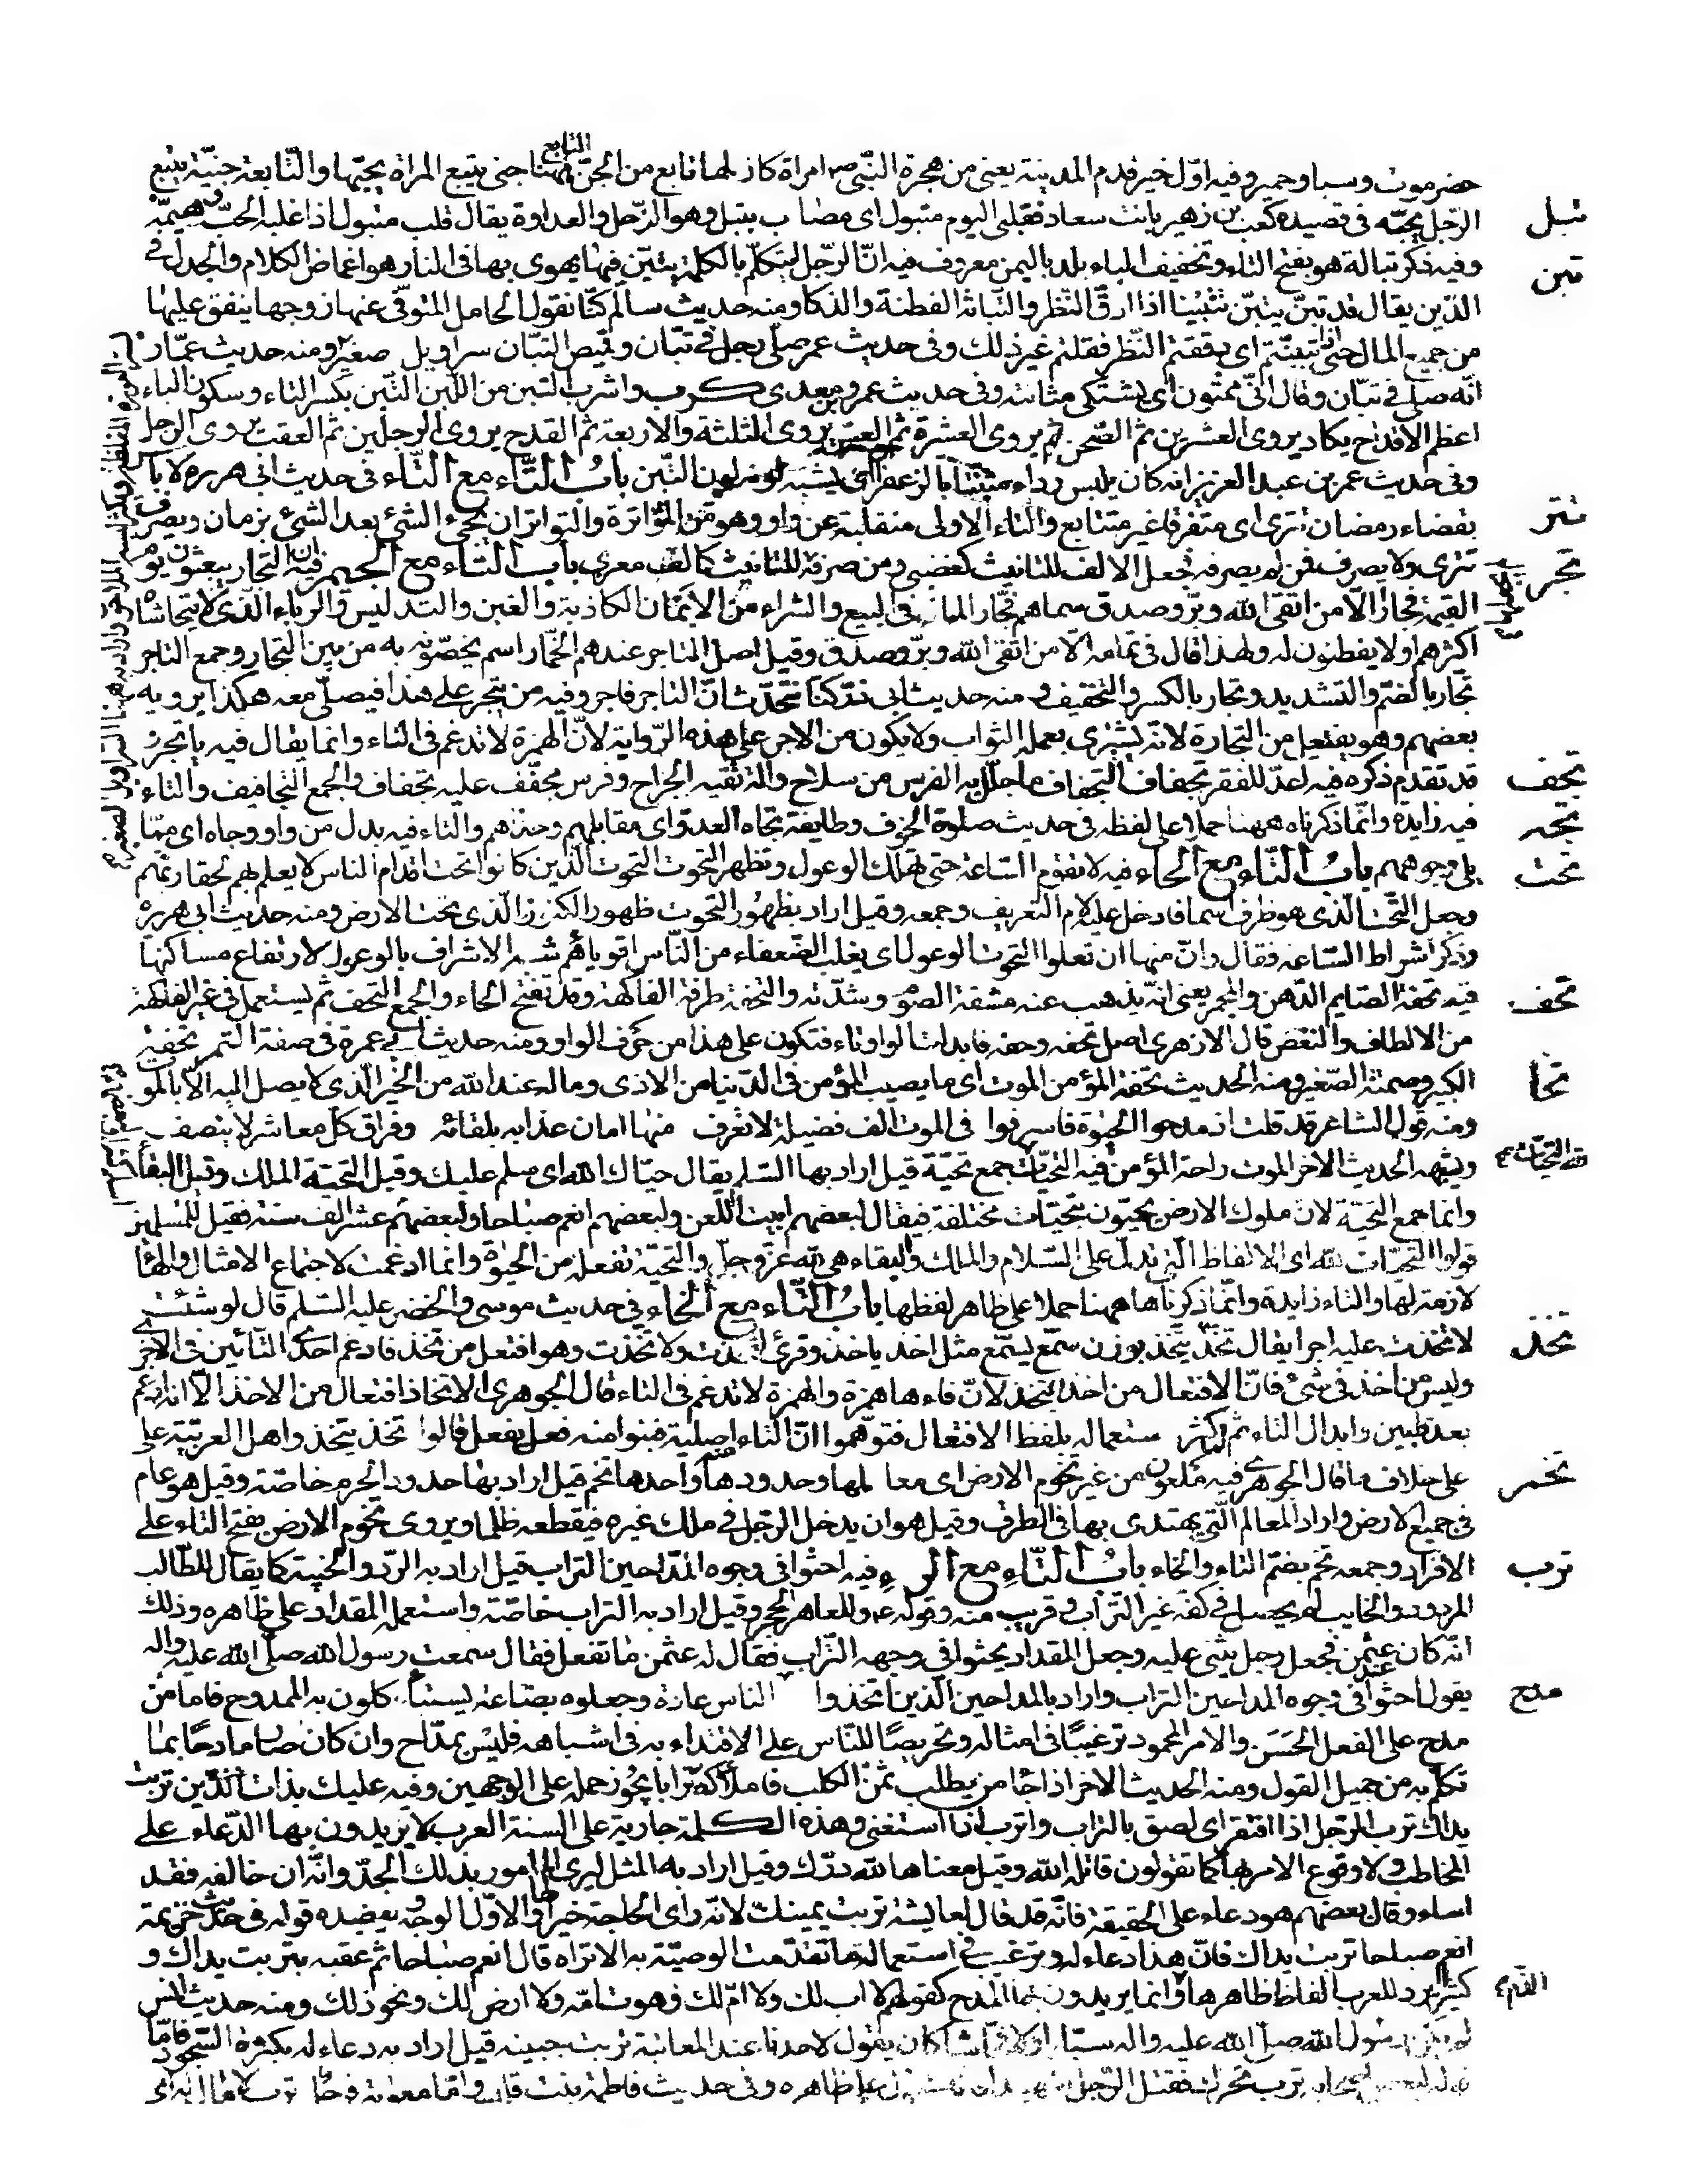 حضرموت وسبا وحمير وفيه اوّل خبر قدم المدينة يعنى من هجرة النّبى ص امراة كان لها تابع من الجنّ التابع ههنا جنى يتبع المراة يحبّها والتّابعة جنّيّة يتبع
تبل الرّجل يحبّه فى قصيدة كعب بن زهير بانت سعاد فقلبى اليوم متبول اى مصاب بتبل وهو الذّحل والعداوة يقال قلب متبول اذا غلبه الحبّ وهيمّه
تبن وفيه ذكر تبالة هو بفتح التاء وتخفيف الباء بلد باليمن معروف فيه انّ الرّجل ليتكلّم بالكلمة يتبّن فيها يهوى بها فى النار هو اغماض الكلام والجدل فى
الدّين يقال قد تبّن يتبّن تتبينا اذا ادقّ النّظر والتّبانة الفطنة والذكا ومنه حديث سالم كنّا نقول الحامل المتوفّى عنها زوجها ينفق عليها
من جميع المال حتى تبنتم اى دققتم النّظر فقلتم غير ذلك وفى حديث عمر صلّى رجل فى تبّان وقميص التبّان سراويل صغير ومنه حديث عمّار
انّه صلى فى تبّان وقال انّى ممثون اى يشتكى مثانته وفى حديث عمرو بن معدى كرب واشرب التبن من اللّبن التّبن بكسر التاء وسكون الباء
اعظم الاقداح يكاد يروى العشرين ثم الصّحن ثم يروى العشرة ثم العسّ يروى الثلثة والاربعة ثم القدح يروى الرجلين ثم العقب يروى الرجل
وفى حديث عمر بن عبد العزيز انه كان يلبس رداء متبّنا بالزعفران اى يشبه لونه لون التّبن باب التّاء مع التّاء فى حديث ابى هريره لا باس
تتر بقضاء رمضان تترى اى متفرقا غير متتابع والتاء الاولى منقلبة عن واو وهو من المواترة والتواتر ان يجئ الشئ بعد الشئ بزمان ويصرف
تجر تترى ولا يصرف فمن لم يصرفه جعل الالف للتانيث كغضبى ومن صرفه للتانيث كالف معزى باب التاء مع الجيم فيه ان التجار يبعثون يوم
القيمة فجارا الّا من اتقى الله وبرّ وصدق سماهم فجّارا لما فى البيع والشراء من الايمان الكاذبة والغبن والتدليس والرباء الّذى لا يتحاشاه
اكثرهم او لا يفطنون له ولهذا قال فى تمامه الّا من اتقى الله وبرّ وصدق وقيل اصل التاجر عندهم الخمّار اسم يخصّونه به من بين التجار وجمع التاجر
تجّار بالضّم والتشديد وتجار بالكسر والتخفيف ومنه حديث ابى ذر كنّا نتحدّث انّ التاجر فاجر وفيه من يتجر على هذا فيصلّى معه هكذا يرويه
بعضهم وهو يفتعل من التجارة لانّه يشترى بعمله الثواب ولا يكون من الاجر على هذه الرّواية لانّ الهمزة لا تدغم فى التاء وانما يقال فيه ياتجر
تجف قد تقدم ذكره فيه اعدّ للفقر تجفافا التجفاف ما جلّل به الفرس من سلاح والة تقيه الجراح وفرس مجفّف عليه تجفاف والجمع التجافيف والتاء
تجه فيه زايدة وانّما ذكرناه ههنا حملا على لفظه فى حديث صلوة الخوف وطايفة تجاه العدوّ اى مقابلهم وحذاهم والتاء فيه بدل من واو وجاه اى ممّا
تحت يلى وجوههم باب التّاء مع الحاء فيه لا تقوم السّاعة حتى تهلك الوعول وتظهر التحوت التحوت الّذين كانوا تحت اقدام الناس لا يعلم بهم لحقارتهم
وجعل التّحت الّذى هو ظرف اسما فادخل عليه لام التعريف وجمعه وقيل اراد بظهور التحوت ظهور الكنوز الّذى تحت الارض ومنه حديث ابى هريره
وذكر اشراط السّاعة فقال وانّ منها ان تعلوا التحوت الوعول اى يغلب الضّعفاء من النّاس اقوياهم شبه الاشراف بالوعول لارتفاع مساكنها
تحف فيه تحفة الصّايم الدّهن والمجمر يعنى انّه يذهب عنه مشقة الصّوم وشدّته والتحفة طرفة الفاكهة وقد تفتح الحاء والجمع التحف ثم يستعمل فى غير الفاكهة
من الالطاف والنغص قال الازهرى اصل تحفه وحفه فابدلت الواو تاء فتكون على هذا من حرف الواو ومنه حديث ابى عمرة فى صفة التمر تحفة
تحا الكبير وصمتة الصّغير ومنه الحديث تحفة المؤمن الموت اى ما يصيب المؤمن فى الدّنيا من الاذى وما له عند الله من الخير الّذى لا يصل اليه الّا بالموت
ومنه قول الشاعر قد قلت اذ مدحوا الحيوة فاسرفوا فى الموت الف فضيلة لا تعرف منها امان عذابه بلقائه وفراق كل معاشر لا ينصف
ويشبهه الحديث الاخر الموت راحة المؤمن فيه التحيّات لله جمع تحيّة قيل اراد بها السّلم يقال حيّاك الله اى سلم عليك وقيل التحيّة الملك وقيل البقاء
وانما جمع التحيّة لان ملوك الارض يحيّون بتحيّات مختلفة فيقال لبعضهم ابيت اللّعن ولبعضهم انعم صباحا ولبعضهم عش الف سنة فقيل للمسلمين
قولوا التحيّات لله اى الالفاظ الّتى تدلّ على السّلام والملك والبقاء هى لله عزّ وجلّ والتحيّة تفعله من الحيوة وانما ادغمت لاجتماع الامثال والهاء
لازمة لها والتاء زايدة وانّما ذكرناها ههنا حملا على ظاهر لفظها باب التّاء مع الخاء فى حديث موسى والخضر عليه السّلم قال لو شئت
تخذ لاتّخذت عليه اجرا يقال تخذ يتّخذ بوزن سمّع يسمّع مثل اخذ ياخذ وقرئ لتخذت ولاتّخذت وهو افتعل من تخذ فادغم احدى التّائين فى الاخرى
وليس من اخذ فى شئ فانّ الافتعال من اخذ ايتخذ لانّ فاءها همزة والهمزة لا تدغم فى التاء قال الجوهرى الاتخاذ افتعال من الاخذ الّا انه ادغم
بعد تليين وابدال التاء ثم لما كثر استعماله بلفظ الافتعال فتوهّموا انّ التاء اصلية فبنوا منه فعل يفعل قالوا تخذ يتخذ واهل العربيّة على
تخم على خلاف ما قال الجوهرى فيه ملعون من غيّر تخوم الارض اى معالمها وحدودها واحدها تخم قيل اراد بها حدود الحرم خاصّة وقيل هو عام
فى جميع الارض واراد المعالم الّتى يهتدى بها فى الطرف وقيل هو ان يدخل الرّجل فى ملك غيره فيقطعه ظلما ويروى تخوم الارض بفتح التاء على
ترب الافراد وجمعه تخم بضمّ التاء والخاء باب التّاء مع الرّاء فيه احثوا فى وجوه المدّاحين التراب قيل اراد به الرّد والخيبة كما يقال للطّالب
المردود والخايب لم يحصل فى كفّه غير التراب وقريب منه وقوله ع وللعاهر الحجر وقيل اراد به التراب خاصّة واستعمله المقداد على ظاهره وذلك
انّه كان عند عثمن فجعل رجل يثنى عليه وجعل المقداد يحثوا فى وجهه التّراب فقال له عثمن ما تفعل فقال سمعت رسول الله صلّى الله عليه واله
مدح يقول احثوا فى وجوه المداحين التراب واراد بالمداحين الّذين اتخذوا الناس عادة وجعلوه بضاعة يستاكلون به الممدوح فاما من
مدح على الفعل الحَسَن والامر المحمود ترغيبًا فى امثاله وتحريصًا للنّاس على الاقتداء به فى اشباهه فليس بمدّاح وان كان صار مادحًا بما
تكلّم به من جميل القول ومنه الحديث الاخر اذا جا من يطلب ثمن الكلب فاملأ كفّه ترابا يجوز حمله على الوجهين وفيه عليك بذات الدّين تربت
يداك ترب الرّجل اذا افتقر اى لصق بالتراب واترب اذا استغنى وهذه الكلمة جارية على السنة العرب لا يريدون بها الدّعاء على
المخاطب ولا وقوع الامر بها كما تقولون قاتله الله وقيل معناها لله درّك وقيل اراد به المثل ليرى المامور بذلك الجدّ وانّه ان خالفه فقد
اساء وقال بعضهم هو دعاء على الحقيقة فانّه قد قال لعايشة تربت يمينك لانّه راى الحاجة خيرا لها والاوّل الوجه يعضده قوله فى حديث خزيمة
انعم صباحا تربت يداك فانّ هذا دعاء له وترغيب فى استعماله ما تقدّمت الوصيّة به الا تراه قال انعم صباحا ثم عقبه بتربت يداك و
كثيرا يرد للعرب الفاظ ظاهرها الذّم وانما يريدون بها المدح كقولهم لا اب لك ولا امّ لك وهوت امّه ولا ارض لك ونحو ذلك ومنه حديث انس
لم يكن رسول الله صلّى الله عليه واله سبّابا ولا فحّاشا كان يقول لاحدنا عند المعاتبة تربت جبينه قيل اراد به دعاء له بكثرة السّجود فامّا
ترب نحرك فقتل الرّجل شهيدا على ظاهره وفى حديث فاطمة بنت قيس وامّا معوية فرجل ترب لا مال له اى